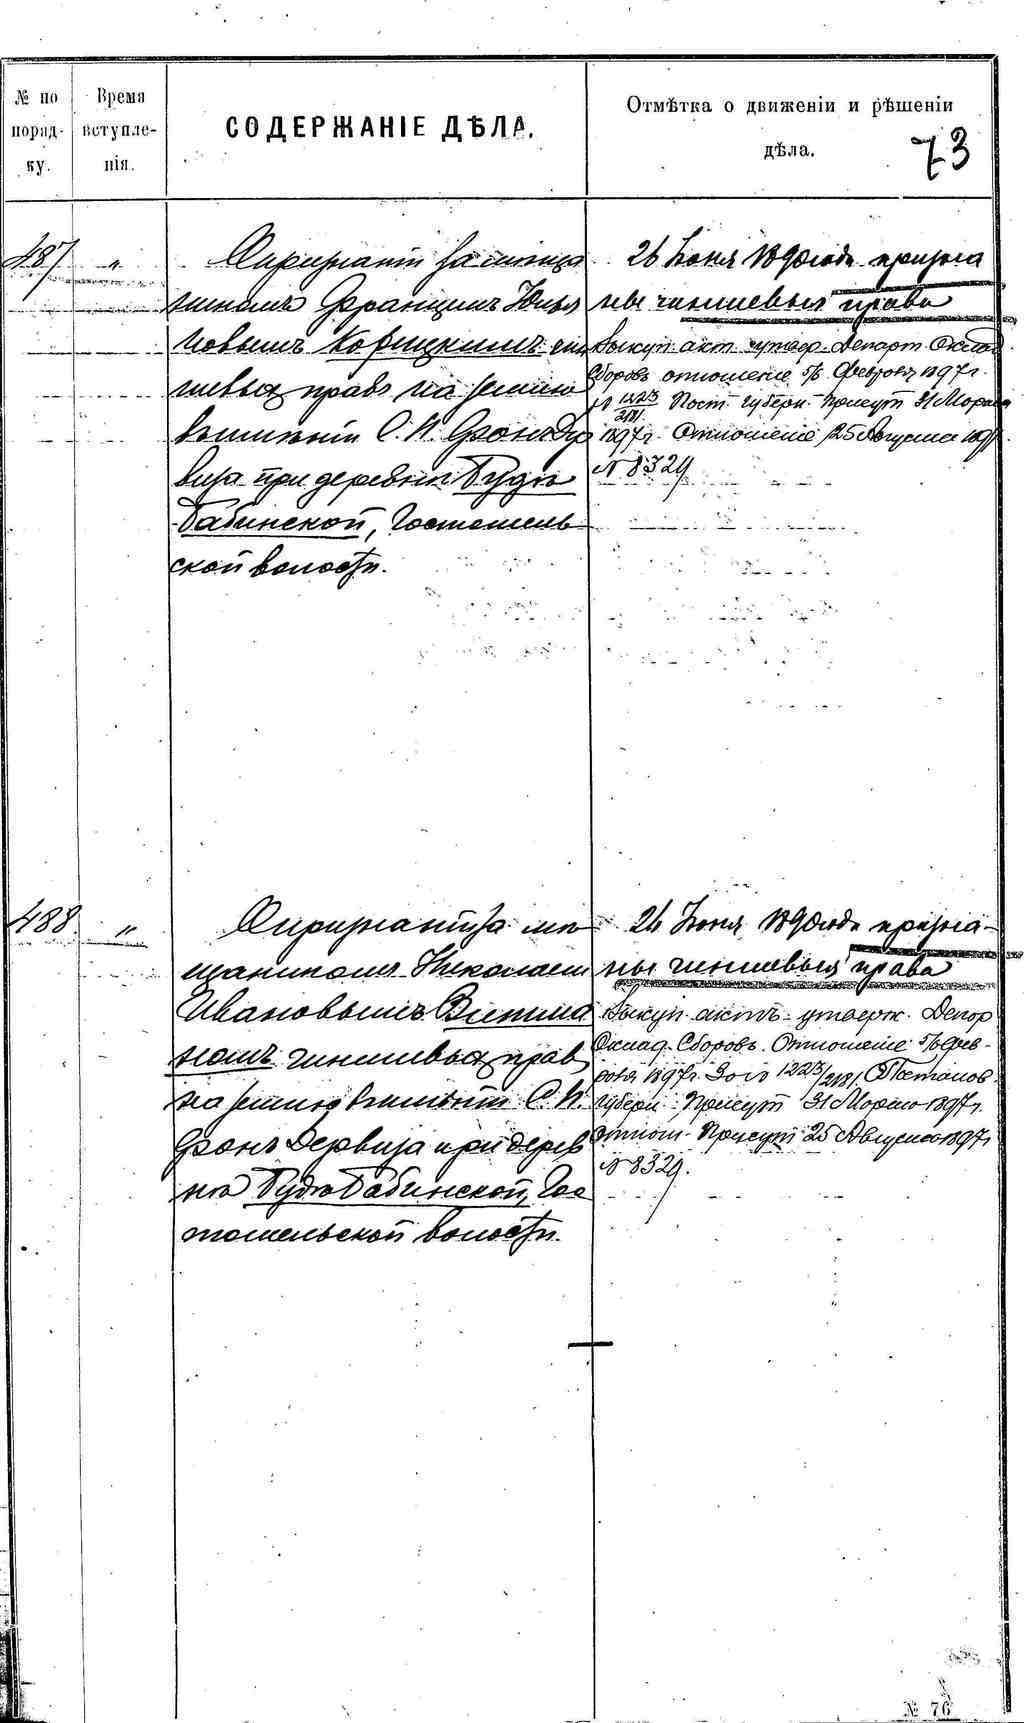 № по поряд- ку.
Время вступле- нія.
СОДЕРЖАНІЕ ДѢЛА.
Отмѣтка о движеніи и рѣшеніи
дѣла.
73
487 "
О признаніи за мѣща
ниномъ Францемъ Юлья
новымъ чин
шевыхъ правъ на землю
въ имѣніи С. П. Фонъ Дер
виза при деревнѣ Будѣ
Бабинской, Гостомель
ской волости.
26 Іюня 1890 года призна
ны чиншевыя права
Выкуп. акт. утвер. Департ. Оклад.
Сборовъ отношеніе 5/6 Февраля 1897 г.
№ 1223/2181 Пост. Губерн. Присут. 31 Марта
1897 г. Отношеніе 25 Августа 1897
№ 8329
488 "
О признаніи за мѣ
щаниномъ Николаемъ
Ивановымъ
чиншевыхъ правъ
на землю въ имѣніи С. П.
Фонъ Дервиза при дерев
нѣ Будѣ Бабинской, Гос
томельской волости.
26 Іюня 1890 года призна-
ны чиншевыя права
Выкуп. актъ утверж. Депар.
Оклад. Сборовъ. Отношеніе 5/6 Фев-
раля 1897 г. За № 1223/2181. Постанов.
Губерн. Присут. 31 Марта 1897 г.
Отнош. Присут. 25 Августа 1897 г.
№ 8329.
№ 76